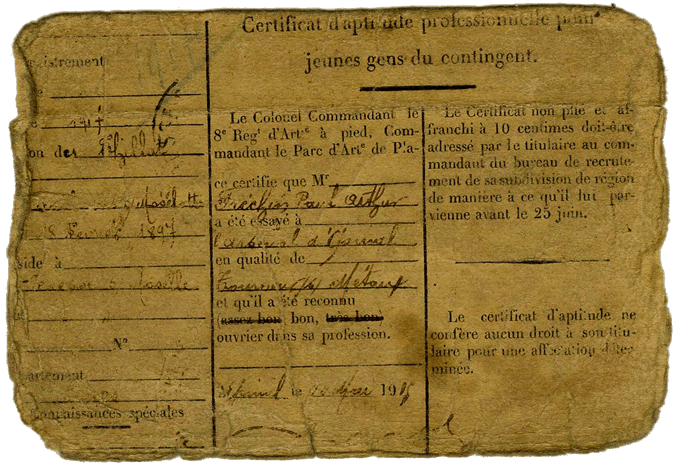 Certificat d'aptitude professionnelle pour
jeunes gens du contingent.
registrement
on des
8 Février 1897
side à
Moselle
N°
artement
onnaissances spéciales
Le Colonel Commandant le
8e Regt d'Arte à pied, Com-
mandant le Parc d'Arte de Pla-
ce certifie que Mr
Paul Arthur
a été essayé à
l'arsenal d'Épinal
en qualité de
Tourneur Métaux
et qu'il a été reconnu
(assez bon) bon, très bon
ouvrier dans sa profession.
Épinal le 19
Le Certificat non plié et af-
franchi à 10 centimes doit être
adressé par le titulaire au com-
mandant du bureau de recrute-
ment de sa subdivision de région
de manière à ce qu'il lui par-
vienne avant le 25 juin.
Le certificat d'aptitude ne
confère aucun droit à son titu-
laire pour une affectation déter-
minée.